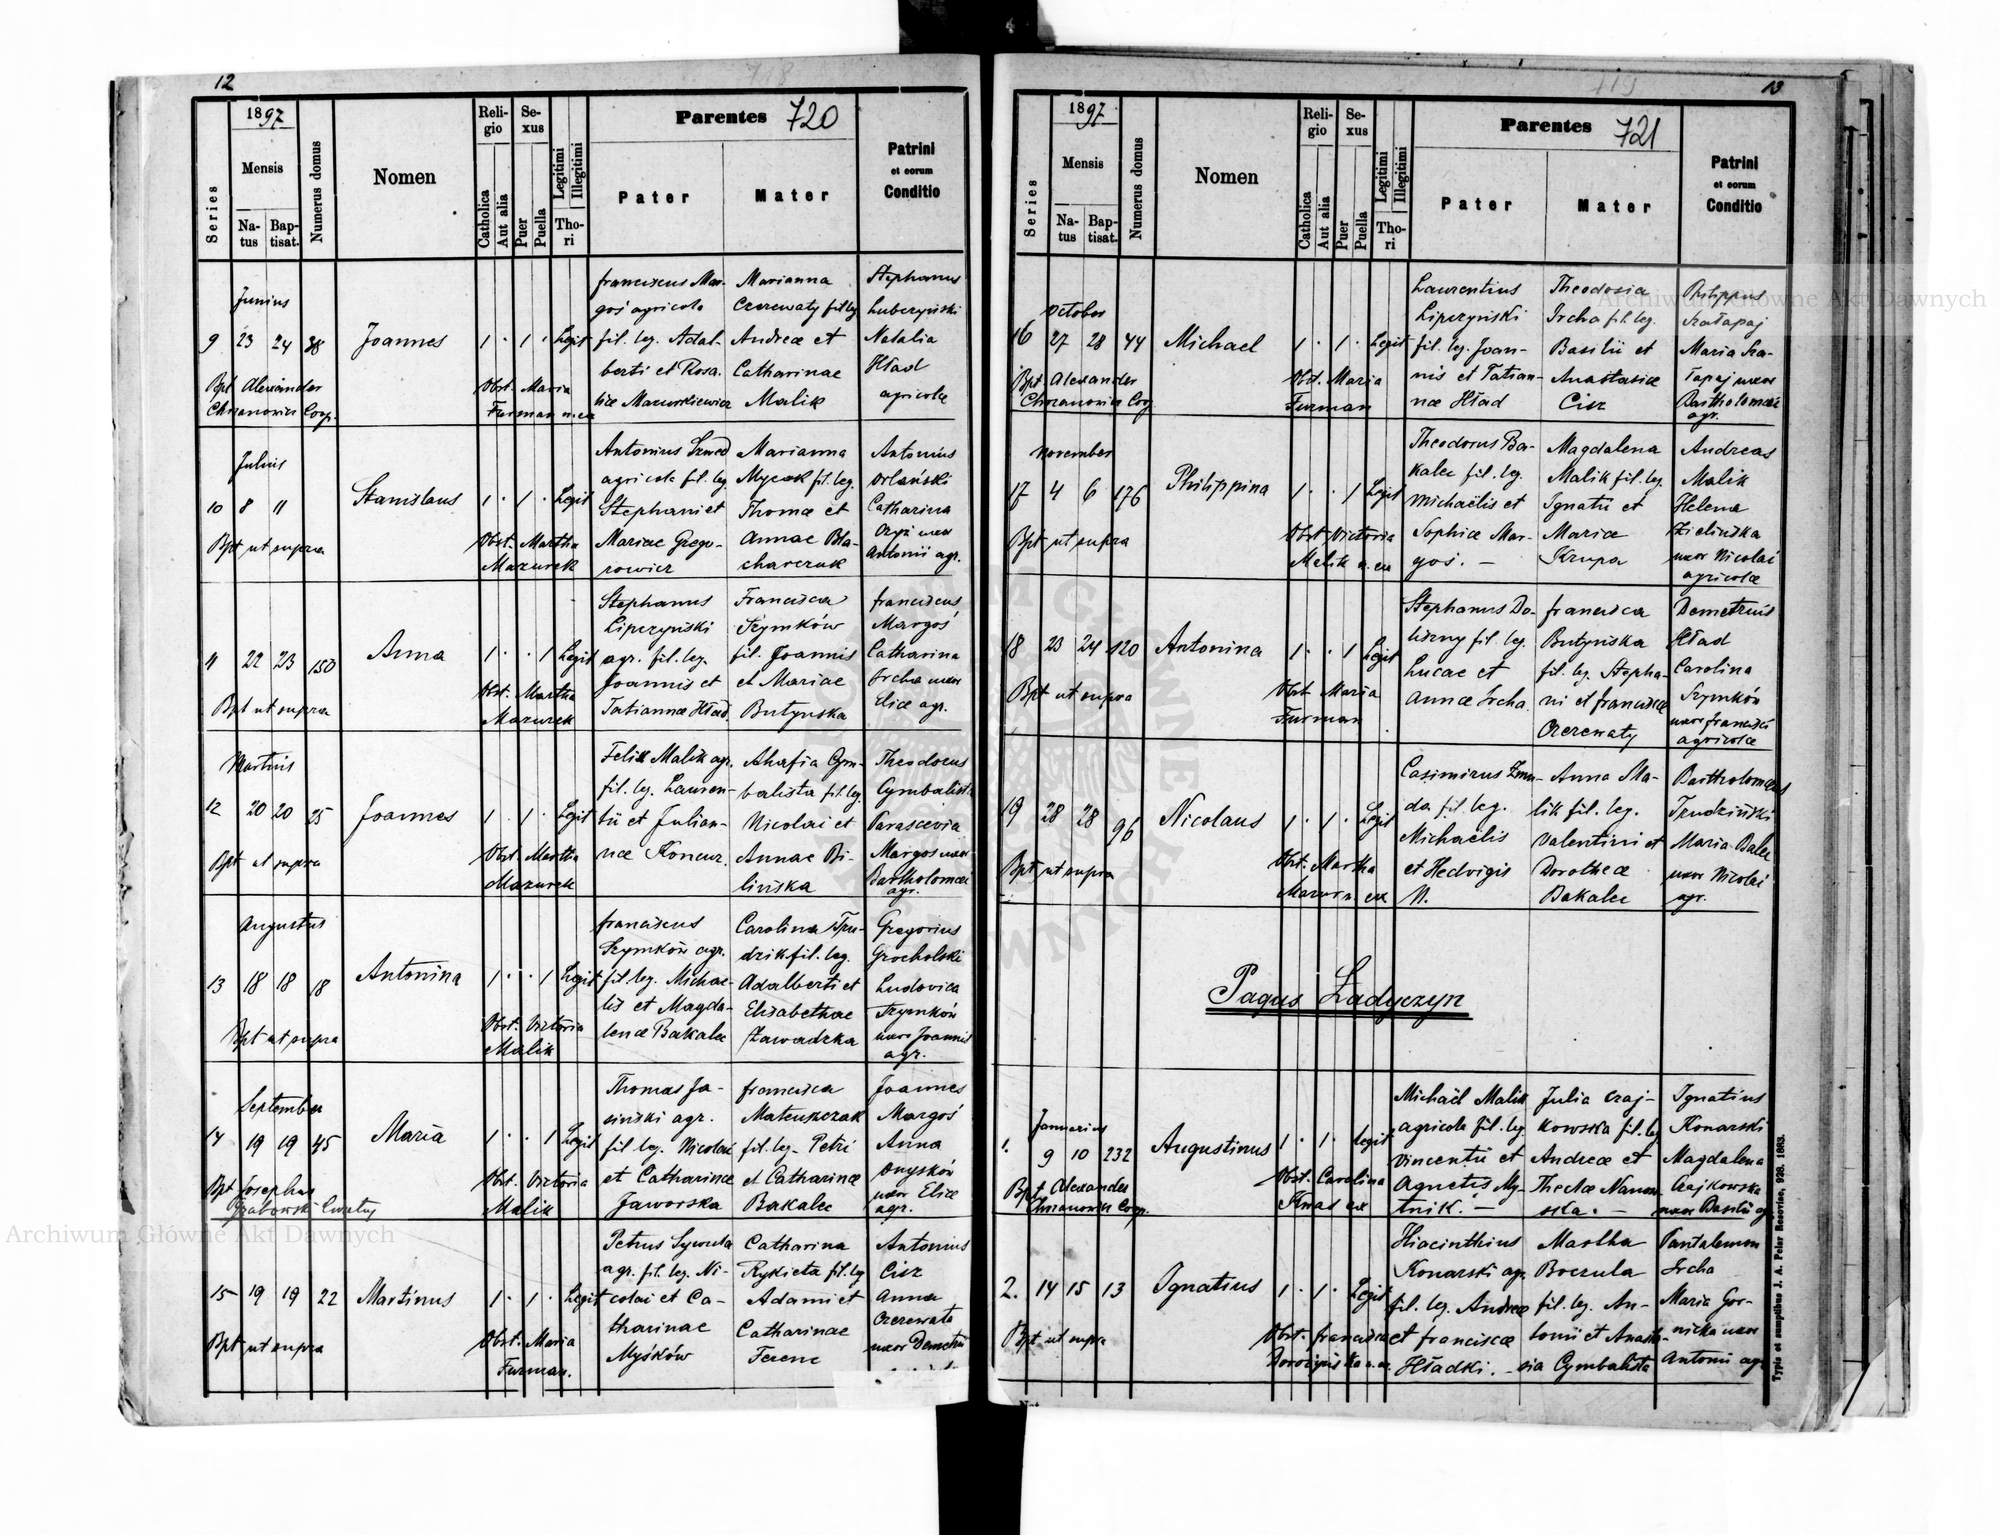 12
718
1897
720
Series
Mensis
Natus
Baptisat.
Numerus domus
Nomen
Religio
Catholica
Aut alia
Sexus
Puer
Puella
Legitimi
Illegitimi
Thori
Parentes
Pater
Mater
Patrini
et eorum
Conditio
Junius
9 23 24 38 Joannes 1 . 1 . Legit
Bpt Alexander
Chrzanowicz Coop.
Obst. Maria
Furman n. ex
franciscus Mar-
goś agricola
fil. leg. Adal-
berti et Rosa-
liæ Mazurkiewicz
Marianna
Czerewaty fil leg
Andreæ et
Catharinae
Malik
Stephanus
Luberzyński
Natalia
Hład
agricolæ
Julius
10 8 11 Stanislaus 1 . 1 . Legit
Bpt ut supra
Obst. Martha
Mazurek
Antonius Szwed
agricola fil. leg.
Stephani et
Mariae Grego-
rowicz
Marianna
Mycak fil. leg.
Thomæ et
Annae Bla-
charczuk
Antonius
Orlański
Catharina
Czyż uxor
Antonii agr.
11 22 23 150 Anna 1 . . 1 Legit
Bpt ut supra
Obst. Martha
Mazurek
Stephanus
Lipczyński
agr. fil. leg.
Joannis et
Tatiannæ Hład
Francisca
Szymków
fil. Joannis
et Mariae
Butynska
franciscus
Margoś
Catharina
Ircha uxor
Eliæ agr.
Martius
12 20 20 25 Joannes 1 . 1 . Legit
Bpt ut supra
Obst. Martha
Mazurek
Felix Malik agr.
fil. leg. Lauren-
tii et Julian-
næ Koncur.
Ahafia Cym-
balista fil. leg.
Nicolai et
Annae Bi-
lińska
Theodorus
Cymbalista
Parascevia
Margoś uxor
Bartholomæi
agr.
Augustus
13 18 18 18 Antonina 1 . . 1 Legit
Bpt ut supra
Obst. Victoria
Malik
franciscus
Szymków agr.
fil leg. Michae-
lis et Magda-
lenæ Bakalec
Carolina Tru-
dzik fil. leg.
Adalberti et
Elisabethae
Zawadzka
Gregorius
Grocholski
Ludovica
Szymków
uxor Joannis
agr.
September
14 19 19 45 Maria 1 . . 1 Legit
Bpt Josephus
Obst. Victoria
Malik
Thomas Ja-
siński agr.
fil leg. Nicolai
et Catharinæ
Jaworska
francisca
Mateuszczak
fil. leg. Petri
et Catharinæ
Bakalec
Joannes
Margoś
Anna
Onyśków
uxor Eliæ
agr.
15 19 19 22 Martinus 1 . 1 . Legit
Bpt ut supra
Obst. Maria
Furman.
Petrus Sywula
agr. fil. leg. Ni-
colai et Ca-
tharinae
Myśków
Catharina
Rykieta fil. leg
Adami et
Catharinae
Ferenc
Antonius
Cisz
Anna
Czerewata
uxor Demetrii
13
719
1897
721
Series
Mensis
Natus
Baptisat.
Numerus domus
Nomen
Religio
Catholica
Aut alia
Sexus
Puer
Puella
Legitimi
Illegitimi
Thori
Parentes
Pater
Mater
Patrini
et eorum
Conditio
October
16 27 28 44 Michael 1 . 1 . Legit
Bpt Alexander
Chrzanowicz Coop
Obst. Maria
Furman
Laurentius
Lipczyński
fil. leg. Joan-
nis et Tatian-
næ Hład
Theodosia
Ircha fil. leg.
Basilii et
Anastasiæ
Cisz
Philippus
Szałapaj
Maria Sza-
łapaj uxor
Bartholomæi
agr.
November
17 4 6 176 Philippina 1 . . 1 Legit
Bpt ut supra
Obst Victoria
Malik n. ex
Theodorus Ba-
kalec fil. leg.
Michaëlis et
Sophiæ Mar-
goś. —
Magdalena
Malik fil. leg.
Ignatii et
Mariæ
Krupa
Andreas
Malik
Helena
Zielińska
uxor Nicolai
agricolæ
18 23 24 120 Antonina 1 . . 1 Legit
Bpt ut supra
Obst Maria
Furman
Stephanus Do-
liszny fil. leg.
Lucae et
Annæ Ircha.
francisca
Butyńska
fil. leg. Stepha-
ni et franciscæ
Czerewaty
Demetrius
Hład
Carolina
Szymków
uxor francisci
agricolæ
19 28 28 96 Nicolaus 1 . 1 . Legit
Bpt ut supra
Obst. Martha
Mazur n. ex
Casimirus Żmu-
da fil. leg.
Michaëlis
et Hedvigis
N.
Anna Ma-
lik fil. leg.
Valentini et
Dorotheæ
Bakalec
Bartholomæus
Trudziński
Maria Balec
uxor Nicolai
agr.
Pagus Ładyczyn
Januarius
1. 9 10 232 Augustinus 1 . 1 . Legit
Bpt Alexander
Chrzanowicz Coop.
Obst. Carolina
Kmas ex
Michaël Malik
agricola fil. leg.
Vincentii et
Agnetis My-
tnik. —
Julia Czaj-
kowska fil. leg
Andreæ et
Theclæ Nanow-
ska. —
Ignatius
Konarski
Magdalena
Czajkowska
uxor Basilii ag.
2. 14 15 13 Ignatius 1 . 1 . Legit
Bpt ut supra
Obst. francisca
Hiacinthius
Konarski agr.
fil. leg. Andreæ
et franciscæ
Hładki. —
Martha
Boczula
fil. leg. An-
tonii et Anasta-
sia Cymbalista
Pantalemon
Ircha
Maria Gór-
nicka uxor
Antonii agr.
Typis et sumptibus J. A. Pelar Resoviae, 928. 1883.
Archiwum Główne Akt Dawnych
Archiwum Główne Akt Dawnych